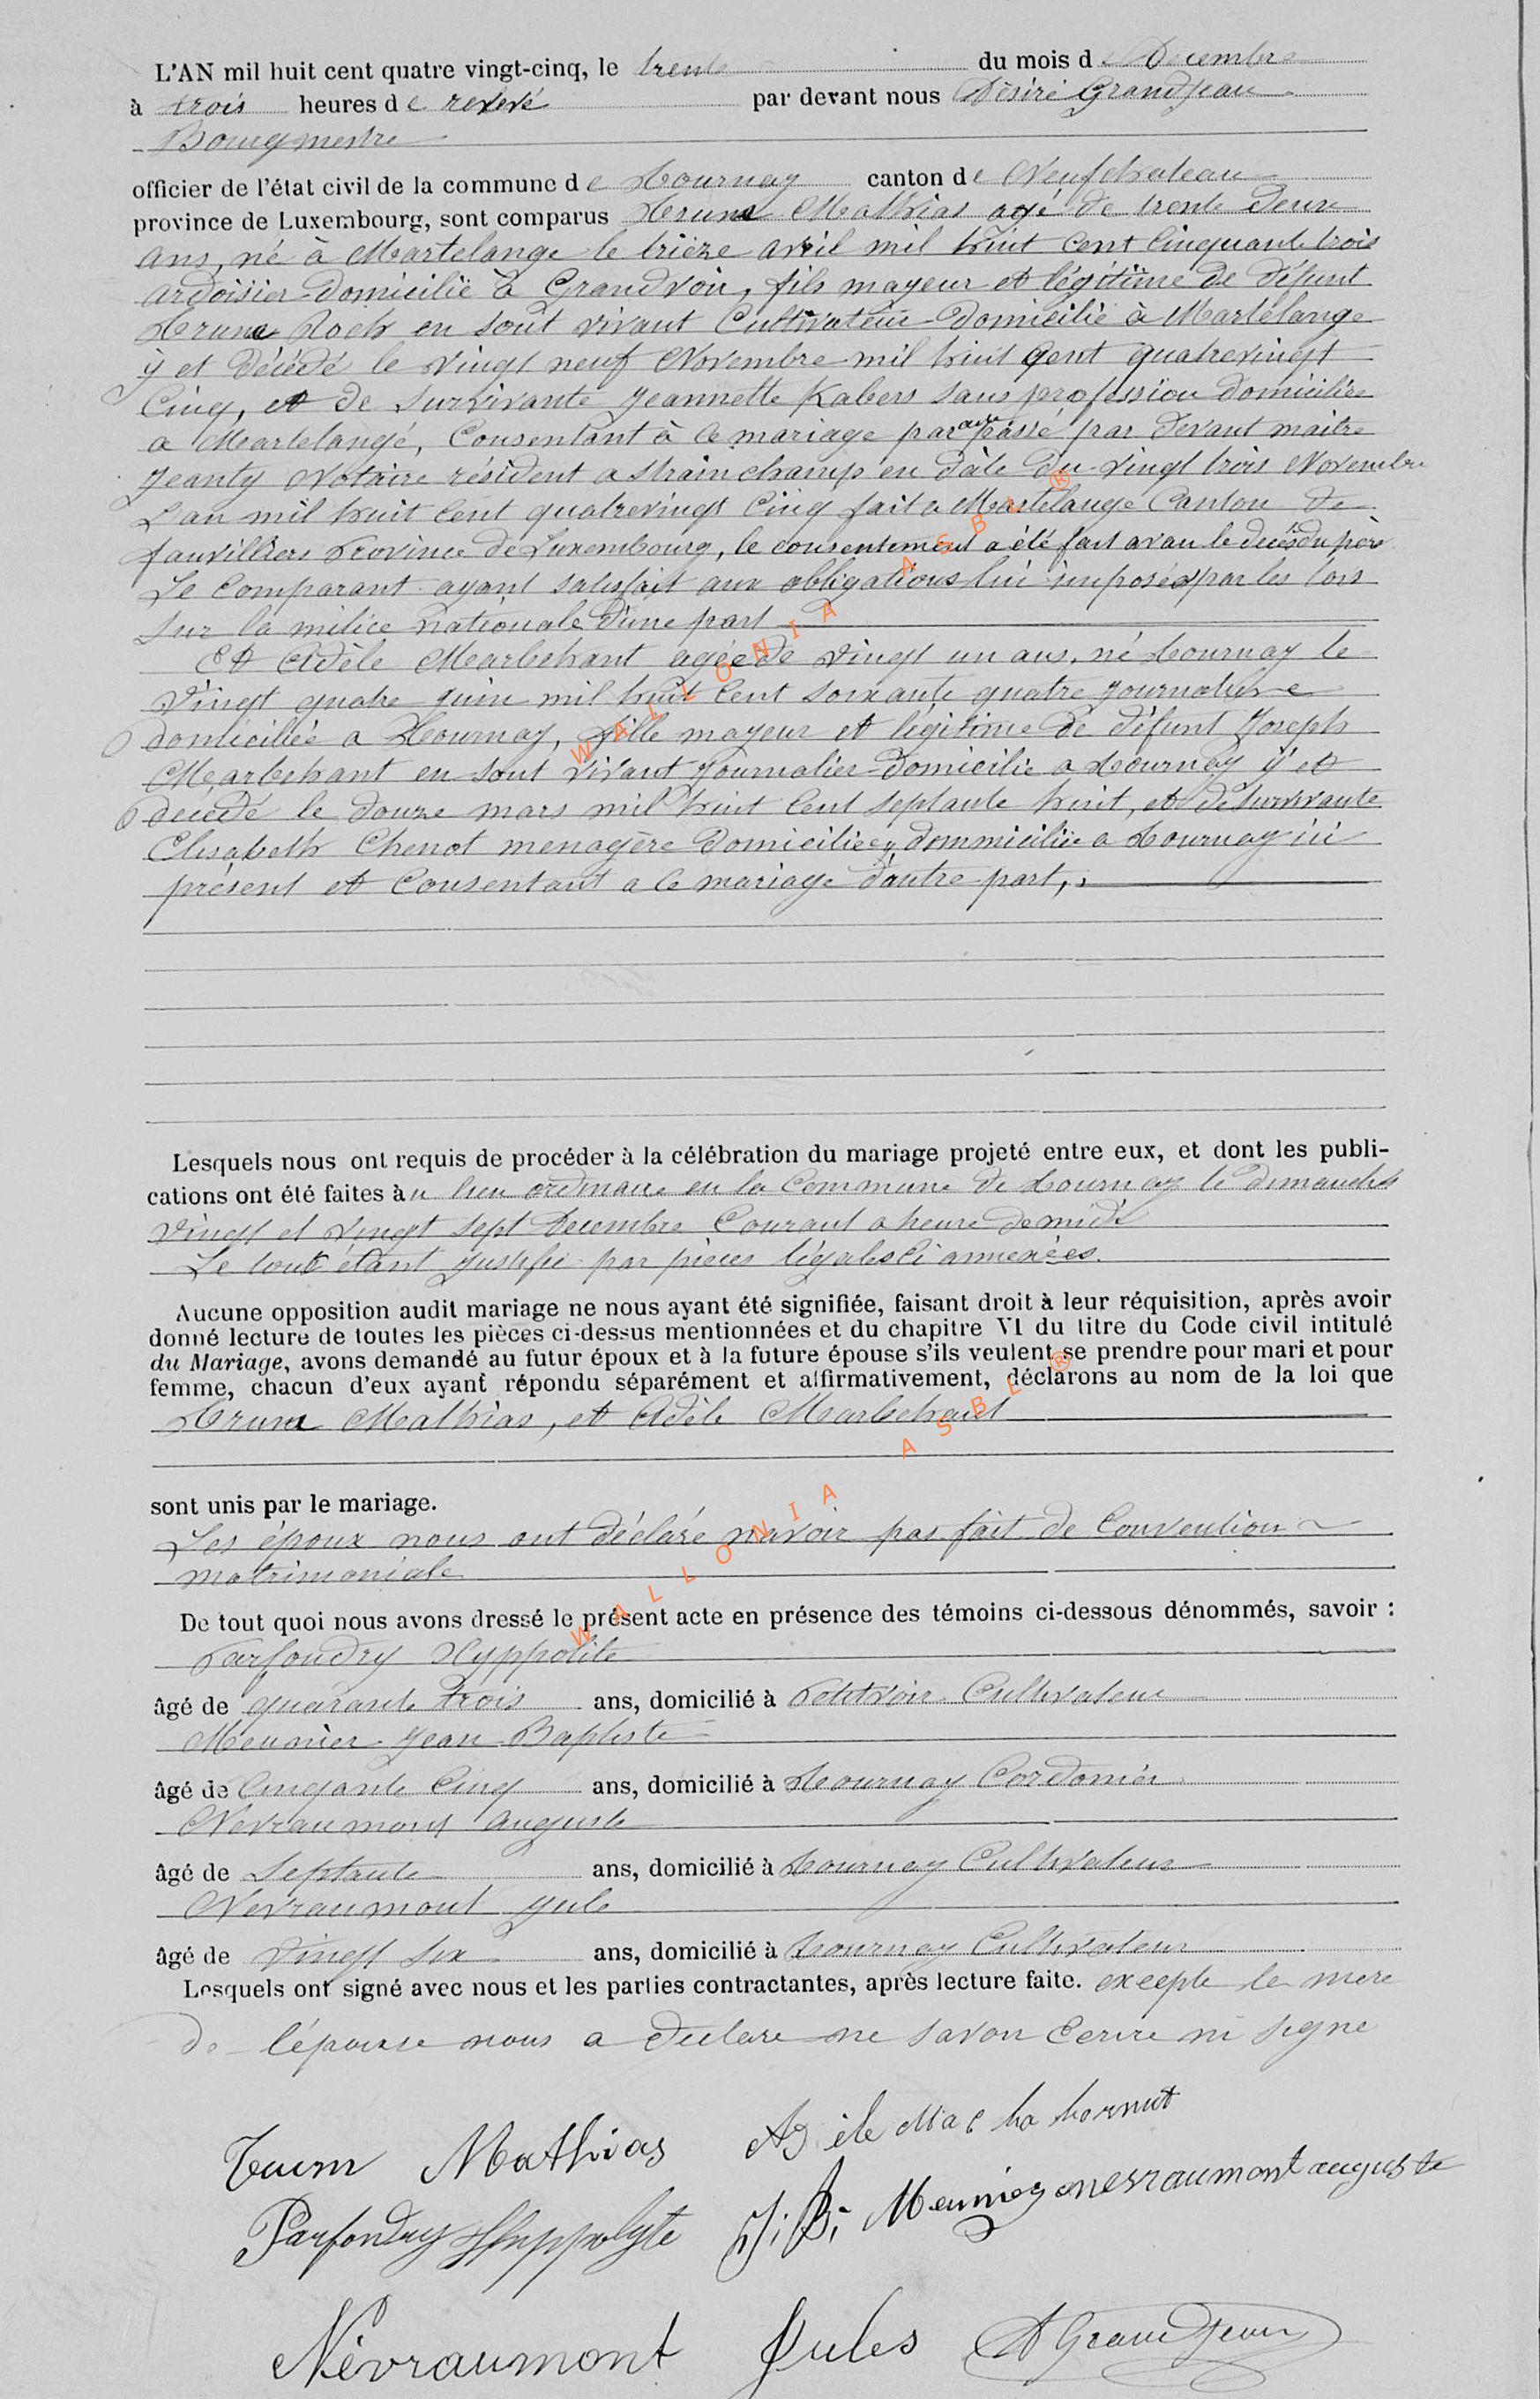 L'AN mil huit cent quatre vingt-cinq, le trente du mois de Decembre
à trois heures de relevé par devant nous Désiré Grandjean
Bourgmestre
officier de l'état civil de la commune de Tournay canton de Neufchateau
province de Luxembourg, sont comparus Mathias agé de trente deux
ans, né à Martelange le trieze avril mil huit cent cinquante trois
ardoisier domicilié à Grandvoir, fils mayeur et légitime de défunt
Roch en sont vivant Cultivateur domicilié à Martelange
y et décédé le vingt neuf Novembre mil huit cent quatrevingt
Cinq, et de survivante Jeannette Kabers sans profession domiciliée
a Martelange, Consentant à ce mariage par acte passé par devant maitre
Jeanty Notaire résident a Strainchamp en date du vingt trois Novembre
L'an mil huit cent quatrevingt cinq fait a Martelange Canton de
fauvillers Province de Luxembourg, le consentement a été fait avan le decès du père
Le Comparant ayant satisfait aux obligations lui imposées par les lois
sur la milice nationale d'une part
Et Adèle Marbehant agée de vingt un ans, né Tournay le
vingt quatre juin mil huit cent soixante quatre journaliere
domiciliée a Tournay, fille mayeur et légitime de défunt Joseph
Marbehant en sont vivant journalier domicilié a Tournay y et
décédé le douze mars mil huit cent septante huit, et de survivante
Elisabeth Chenot menagère domiciliée domiciliée a Tournay ici
présent et Consentant a ce mariage d'autre part,
Lesquels nous ont requis de procéder à la célébration du mariage projeté entre eux, et dont les publi-
cations ont été faites au lieu ordinaire en la Commune de Tournay le dimanches
vingt et vingt sept Decembre Courant a heure de midi
Le tout étant justifié par pièces légales ci annexées.
Aucune opposition audit mariage ne nous ayant été signifiée, faisant droit à leur réquisition, après avoir
donné lecture de toutes les pièces ci-dessus mentionnées et du chapitre VI du titre du Code civil intitulé
du Mariage, avons demandé au futur époux et à la future épouse s'ils veulent se prendre pour mari et pour
femme, chacun d'eux ayant répondu séparément et affirmativement, déclarons au nom de la loi que
Mathias, et Adèle Marbehant
sont unis par le mariage.
Les époux nous ont déclaré n'avoir pas fait de Convention
matrimoniale
De tout quoi nous avons dressé le présent acte en présence des témoins ci-dessous dénommés, savoir :
Parfondry Hyppolite
âgé de quarante trois ans, domicilié à Petitvoir Cultivateur
Meunier Jean Baptiste
âgé de Cinqante Cinq ans, domicilié à Tournay Cordonier
Nevraumont Auguste
âgé de Septante ans, domicilié à Tournay Cultivateur
Nevraumont Jule
âgé de Vingt six ans, domicilié à Tournay Cultivateur
Lesquels ont signé avec nous et les parties contractantes, après lecture faite. excepte la mere
de l'épouse nous a declare ne savoir Ecrire ni signe
Mathias
Parfondry Hyppolyte J. B. Meunier nevraumont auguste
Névraumont Jules Grandjean
WALLONIA ASBL ®
WALLONIA ASBL ®